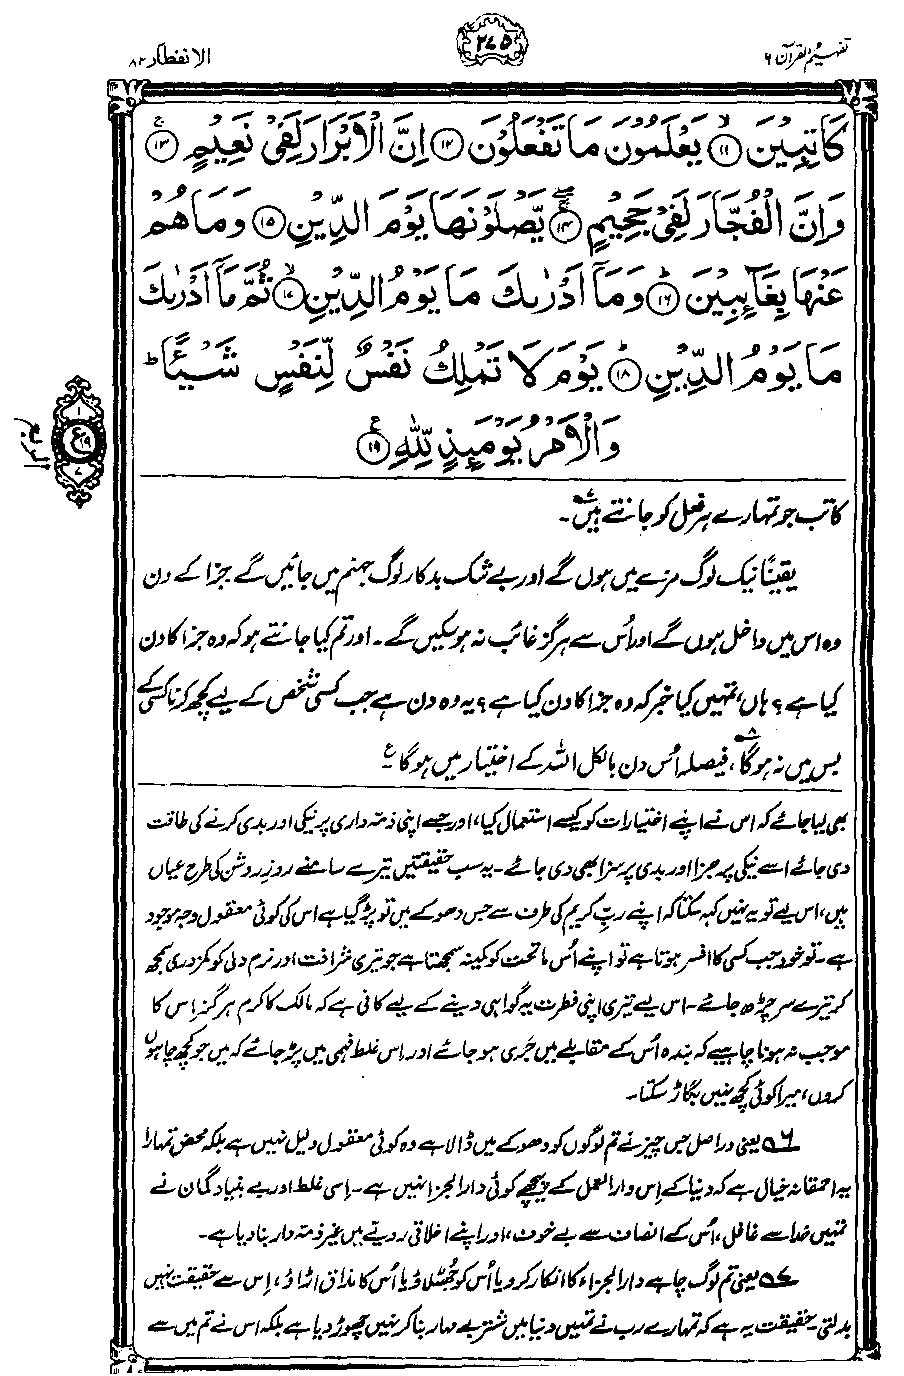 تفہیم القرآن ۶
۲۷۵
الانفطار ۸۲
كَاتِبِيْنَ ۙ﴿۱۱﴾ يَعْلَمُوْنَ مَا تَفْعَلُوْنَ ﴿۱۲﴾ اِنَّ الْاَبْرَارَ لَفِيْ نَعِيْمٍ ۚ﴿۱۳﴾
وَاِنَّ الْفُجَّارَ لَفِيْ جَحِيْمٍ ﴿۱۴﴾ يَّصْلَوْنَهَا يَوْمَ الدِّيْنِ ﴿۱۵﴾ وَمَا هُمْ
عَنْهَا بِغَآئِبِيْنَ ؕ﴿۱۶﴾ وَمَآ اَدْرٰىكَ مَا يَوْمُ الدِّيْنِ ۙ﴿۱۷﴾ ثُمَّ مَآ اَدْرٰىكَ
مَا يَوْمُ الدِّيْنِ ؕ﴿۱۸﴾ يَوْمَ لَا تَمْلِكُ نَفْسٌ لِّنَفْسٍ شَيْـًٔا ؕ
وَالْاَمْرُ يَوْمَئِذٍ لِّلّٰهِ ﴿۱۹﴾
کاتب جو تمہارے ہر فعل کو جانتے ہیں۷۔
یقیناً نیک لوگ مزے میں ہوں گے اور بے شک بدکار لوگ جہنم میں جائیں گے جزا کے دن
وہ اس میں داخل ہوں گے اور اُس سے ہرگز غائب نہ ہو سکیں گے۔ اور تم کیا جانتے ہو کہ وہ جزا کا دن
کیا ہے؟ ہاں، تمہیں کیا خبر کہ وہ جزا کا دن کیا ہے؟ یہ وہ دن ہے جب کسی شخص کے لیے کچھ کرنا کسی کے
بس میں نہ ہو گا۸، فیصلہ اُس دن بالکل اللہ کے اختیار میں ہو گا ؏
بھی لیا جائے کہ اس نے اپنے اختیارات کو کیسے استعمال کیا، اور جسے اپنی ذمہ داری پر نیکی اور بدی کرنے کی طاقت
دی جائے اسے نیکی پر جزا اور بدی پر سزا بھی دی جائے۔ یہ سب حقیقتیں تیرے سامنے روزِ روشن کی طرح عیاں
ہیں، اس لیے تو یہ نہیں کہہ سکتا کہ اپنے ربِّ کریم کی طرف سے جس دھوکے میں تو پڑ گیا ہے اس کی کوئی معقول وجہ موجود
ہے۔ تو خود جب کسی کا افسر ہوتا ہے تو اپنے اُس ماتحت کو کمینہ سمجھتا ہے جو تیری شرافت اور نرم دلی کو کمزوری سمجھ
کر تیرے سر چڑھ جائے۔ اس لیے تیری اپنی فطرت یہ گواہی دینے کے لیے کافی ہے کہ مالک کا کرم ہرگز اِس کا
موجب نہ ہونا چاہیے کہ بندہ اُس کے مقابلے میں جَری ہو جائے اور اس غلط فہمی میں پڑ جائے کہ میں جو کچھ چاہوں
کروں، میرا کوئی کچھ نہیں بگاڑ سکتا۔
۶ یعنی دراصل جس چیز نے تم لوگوں کو دھوکے میں ڈالا ہے وہ کوئی معقول دلیل نہیں ہے بلکہ محض تمہارا
یہ احمقانہ خیال ہے کہ دنیا کے اِس دار العمل کے پیچھے کوئی دار الجزا نہیں ہے۔ اِسی غلط اور بے بنیاد گمان نے
تمہیں خدا سے غافل، اُس کے انصاف سے بے خوف، اور اپنے اخلاقی رویے میں غیر ذمہ دار بنا دیا ہے۔
۷ یعنی تم لوگ چاہے دار الجزاء کا انکار کرو یا اُس کو جھٹلاؤ یا اُس کا مذاق اڑاؤ، اِس سے حقیقت نہیں
بدلتی۔ حقیقت یہ ہے کہ تمہارے رب نے تمہیں دنیا میں شتر بے مہار بنا کر نہیں چھوڑ دیا ہے بلکہ اس نے تم میں سے
۱
ع
۱۹
۷
الربع